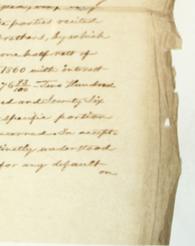 parties recited
brothers, by which
one half rest of
1860 with interest
76 53/100 Two Hundred
ed and Seventy Six
specific portion
concerned. In
tinctly understood
for any default
on